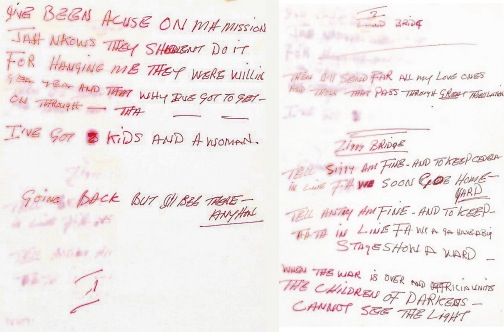 I'VE BEEN ACUSE ON MA MISSION
JAH NKOWS THEY SHOULDENT DO IT
FOR HANGING ME THEY WERE WILLIN
AND THAT WHY I'VE GOT TO GET-
ON THROUGH —
I'VE GOT KIDS AND A WOMAN.
GOING BACK BUT I'll BEE THERE-
ANYHOW
1
2
BRIDGE
THEN I'll SEND FAR ALL MY LOVE ONES
AND THEM THAT PASS THROUGH GREAT TRIBULATION
Ziggy BRIDGE
TELL AM FINE - AND TO KEEP CEDEA
IN LINE SOON HOME-
WARD
TELL AM FINE - AND TO KEEP-
IN LINE FA WE
STAGESHOW A YARD —
WHEN THE WAR IS OVER AND
THE CHILDREN OF DARKENS-
CANNOT SEE THE LIGHT